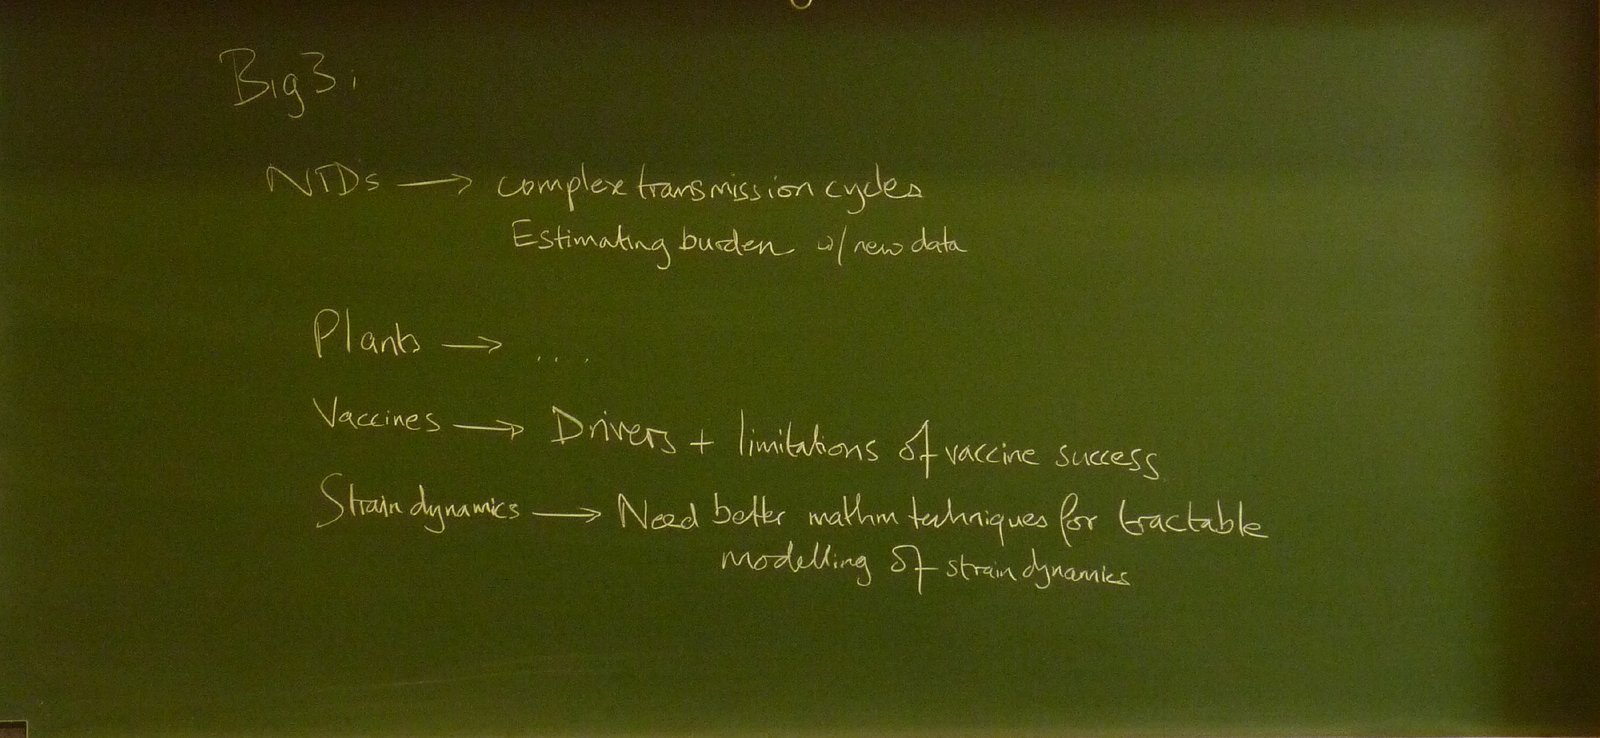 Big 3:
NTDs → complex transmission cycles
Estimating burden w/ new data
Plants → ....
Vaccines → Drivers + limitations of vaccine success
Strain dynamics → Need better mathm techniques for tractable
modelling of strain dynamics